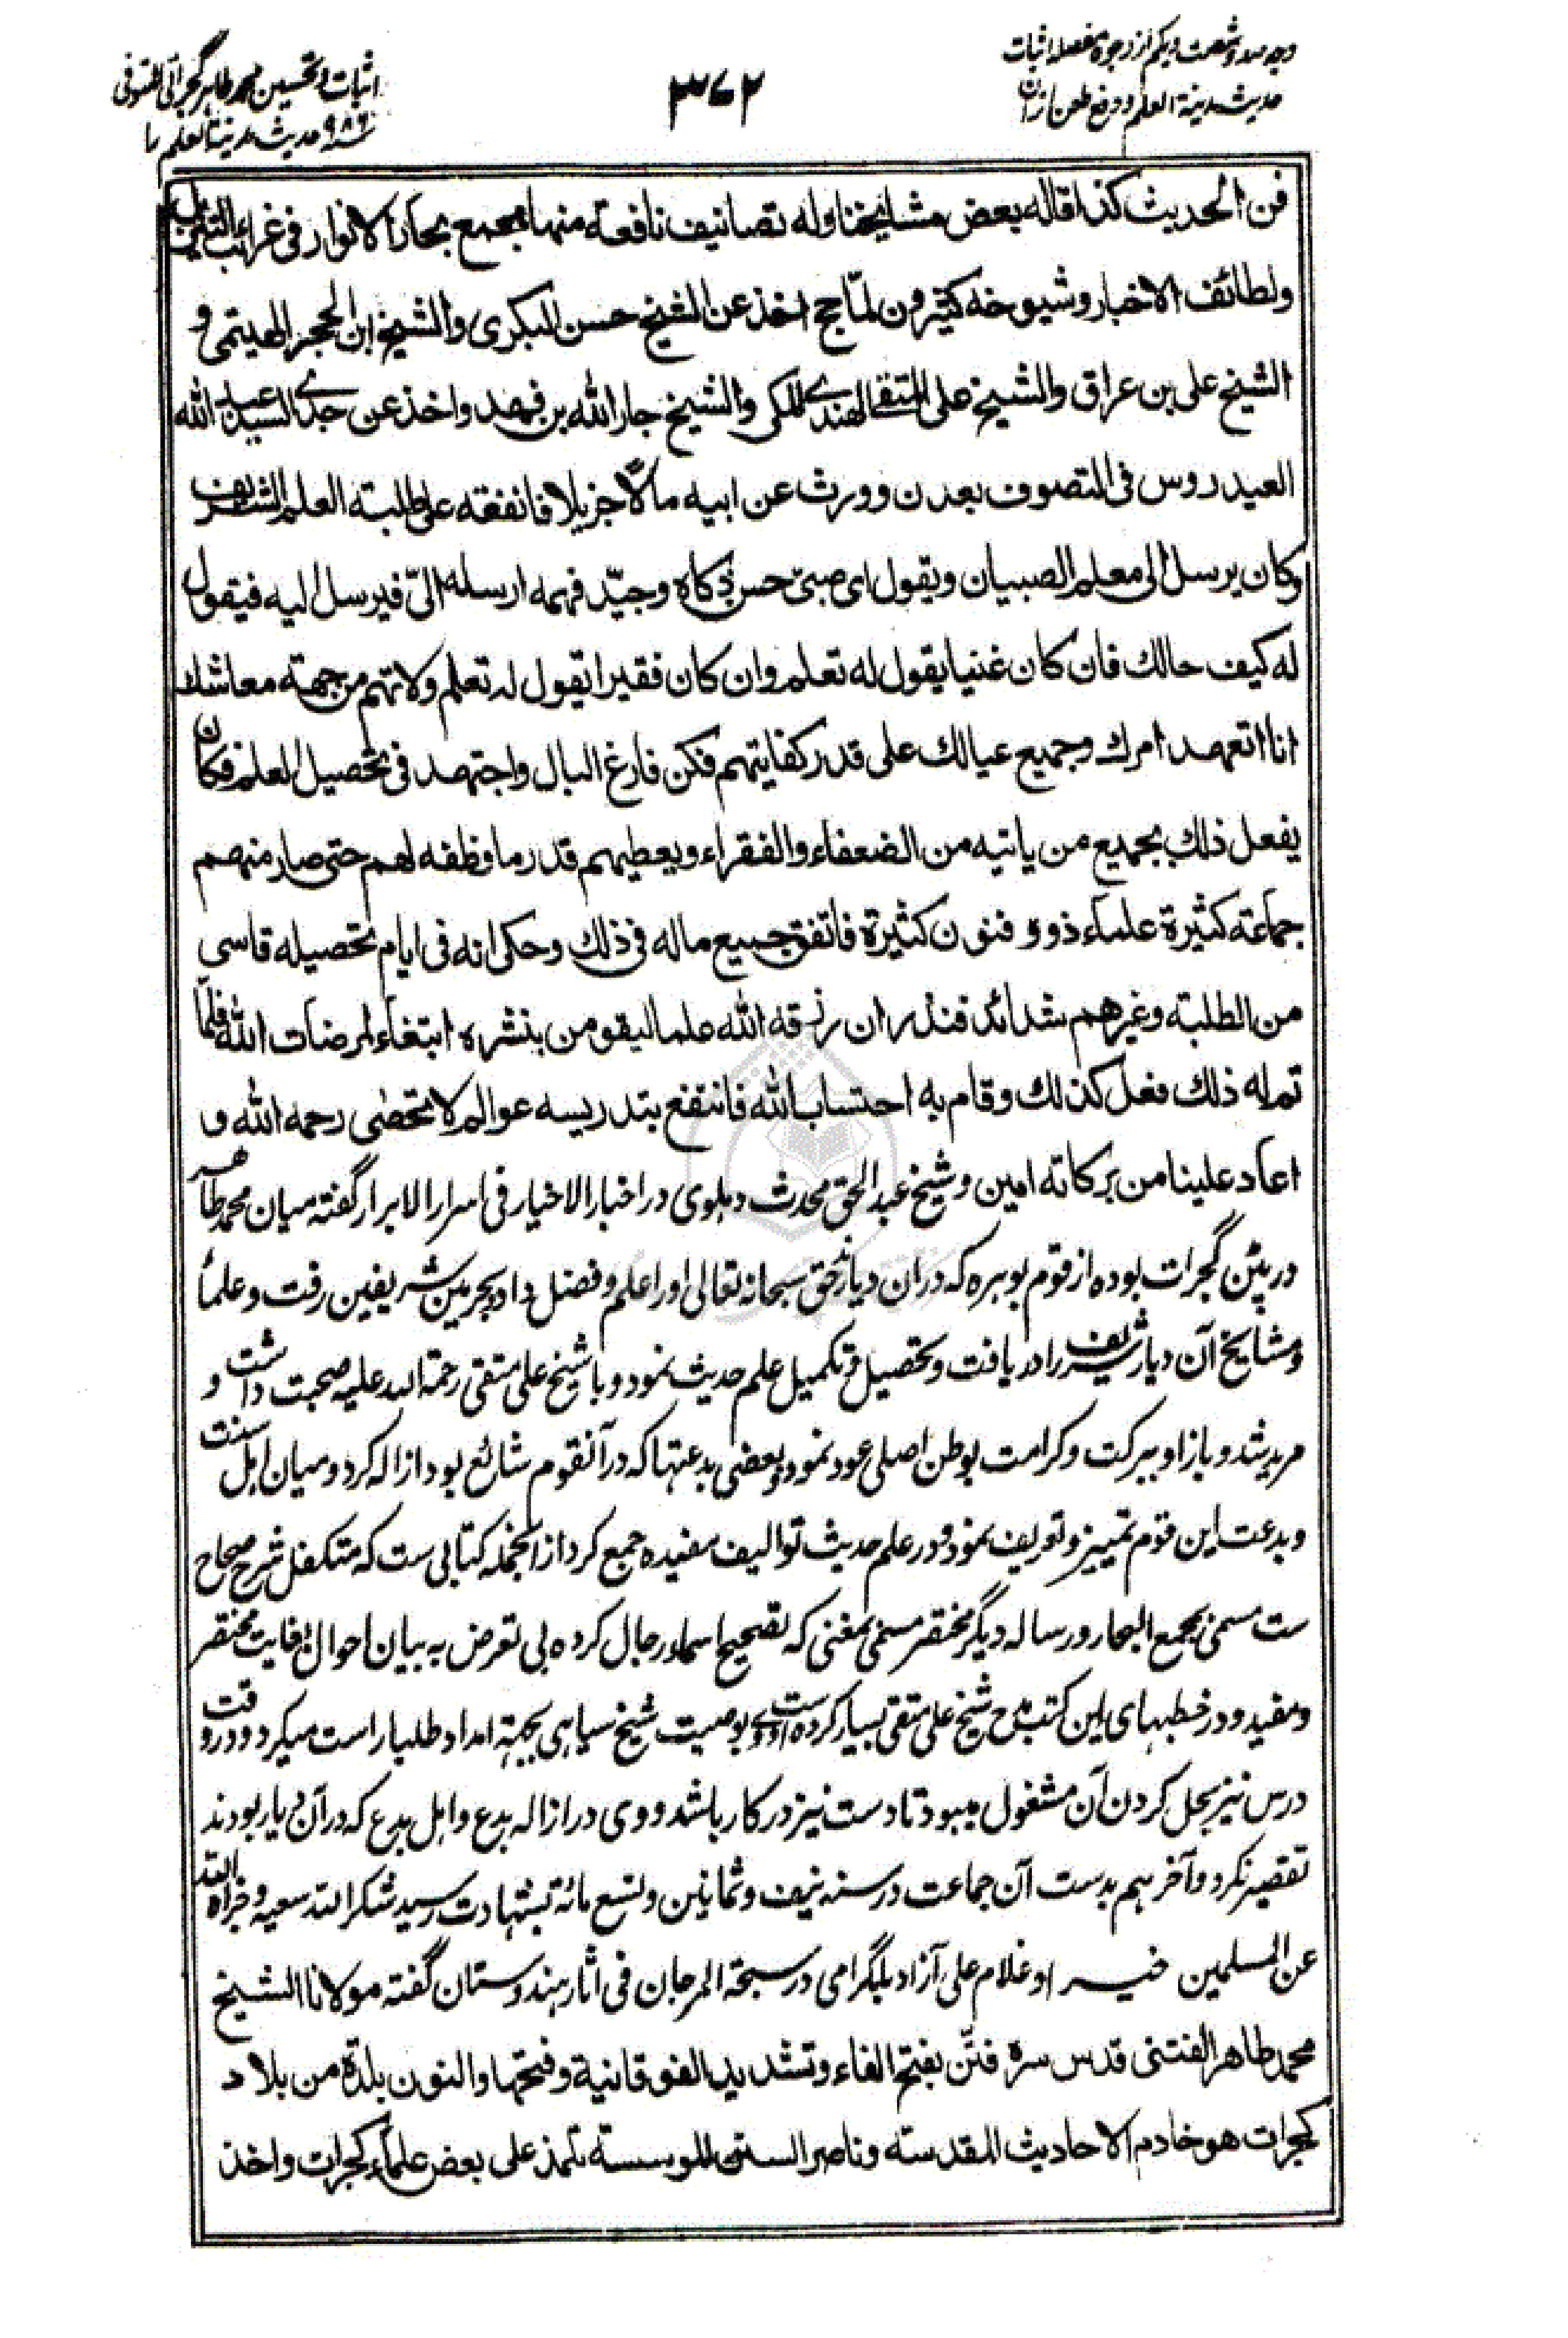 وجه صد و شصت و یکم از وجوه مفصله اثبات
حدیث مدینة العلم و دفع طعن ازان
۳۷۲
اثبات و تحسین محمد طاهر گجراتی المتوفی
سنه ۹۸۶ حدیث مدینة العلم را
فن الحدیث کذا قاله بعض مشایخنا وله تصانیف نافعة منها مجمع بحار الانوار فی غرائب التنزیل
ولطائف الاخبار وشیوخه کثیرون لما حج اخذ عن الشیخ حسن البکری والشیخ ابن الحجر الهیتمی و
الشیخ علی بن عراق والشیخ علی المتقی الهندی المکی والشیخ جار الله بن فهد واخذ عن جدی السید عبد الله
العیدروس فی التصوف بعدن وورث عن ابیه مالًا جزیلا فانفقه علی طلبته العلم الشریف
وکان یرسل الی معلم الصبیان ویقول ای صبیّ حسن ذکاه وجیّد فهمه ارسله الیّ فیرسل الیه فیقول
له کیف حالک فان کان غنیا یقول له تعلم وان کان فقیرا یقول له تعلم ولا تهتم من جهة معاشک
انا اتعهد امرک وجمیع عیالک علی قدر کفایتهم فکن فارغ البال واجتهد فی تحصیل العلم فکان
یفعل ذلک بجمیع من یاتیه من الضعفاء والفقراء ویعطیهم قدر ما وظفه لهم حتی صار منهم
جماعة کثیرة علماء ذوو فنون کثیرة فانفق جمیع ماله فی ذلک وحکی انه فی ایام تحصیله قاسی
من الطلبة وغیرهم شدائد فنذر ان رزقه الله علما لیقومن بنشره ابتغاء لمرضات الله فلمّا
تم له ذلک فعل کذلک وقام به احتسابا لله فانتفع بتدریسه عوالم لا تحصی رحمه الله و
اعاد علینا من برکاته امین و شیخ عبد الحق محدث دهلوی در اخبار الاخیار فی اسرار الابرار گفته میان محمد طاهر
در پتن گجرات بوده از قوم بوهره که دران دیارند حق سبحانه تعالی او را علم و فضل داد بحرمین شریفین رفت و علما
و مشایخ آن دیار شریف را دریافت و تحصیل و تکمیل علم حدیث نمود و با شیخ علی متقی رحمة الله علیه صحبت داشت و
مرید شد و باز او ببرکت و کرامت بوطن اصلی عود نمود و بعضی بدعتها که در آنقوم شائع بود ازاله کرد و میان اهل سنت
و بدعت این قوم تمییز و تفریق نمود و در علم حدیث توالیف مفیده جمع کرد از آنجمله کتابی ست که متکفل شرح صحاح
ست مسمی بمجمع البحار و رساله دیگر مختصر مسمی بمغنی که تصحیح اسماء رجال کرده بی تعرض به بیان احوال بغایت مختصر
و مفید و در خطبهای این کتب مدح شیخ علی متقی بسیار کرده ست او بوصیت شیخ سیاهی بجهة امداد طلبا راست میکرد و در وقت
درس نیز بحل کردن آن مشغول میبود تا دست نیز در کار باشد و وی در ازاله بدع و اهل بدع که در آن دیار بودند
تقصیر نکرد و آخر هم بدست آن جماعت در سنه نیف و ثمانین و تسع مائة بشهادت رسید شکر الله سعیه و جزاه الله
عن المسلمین خیرا و غلام علی آزاد بلگرامی در سبحة المرجان فی اثار هندوستان گفته مولانا الشیخ
محمد طاهر الفتنی قدس سره فتّن بفتح الفاء وتشدید الفوقانیة وفتحها والنون بلدة من بلاد
گجرات هو خادم الاحادیث المقدسته وناصر السنن الموسسته تلمذ علی بعض علماء گجرات واخذ